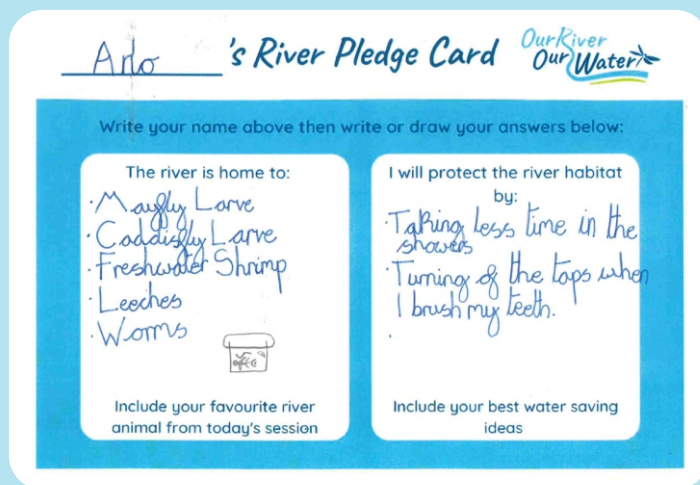 Arlo's River Pledge Card
Our River
Our Water
Write your name above then write or draw your answers below:
The river is home to:
· Mayfly Larve
· Caddisfly Larve
· Freshwater Shrimp
· Leeches
· Worms
Include your favourite river
animal from today's session
I will protect the river habitat
by:
· Taking less time in the
showers
· Turning of the taps when
I brush my teeth.
·
Include your best water saving
ideas